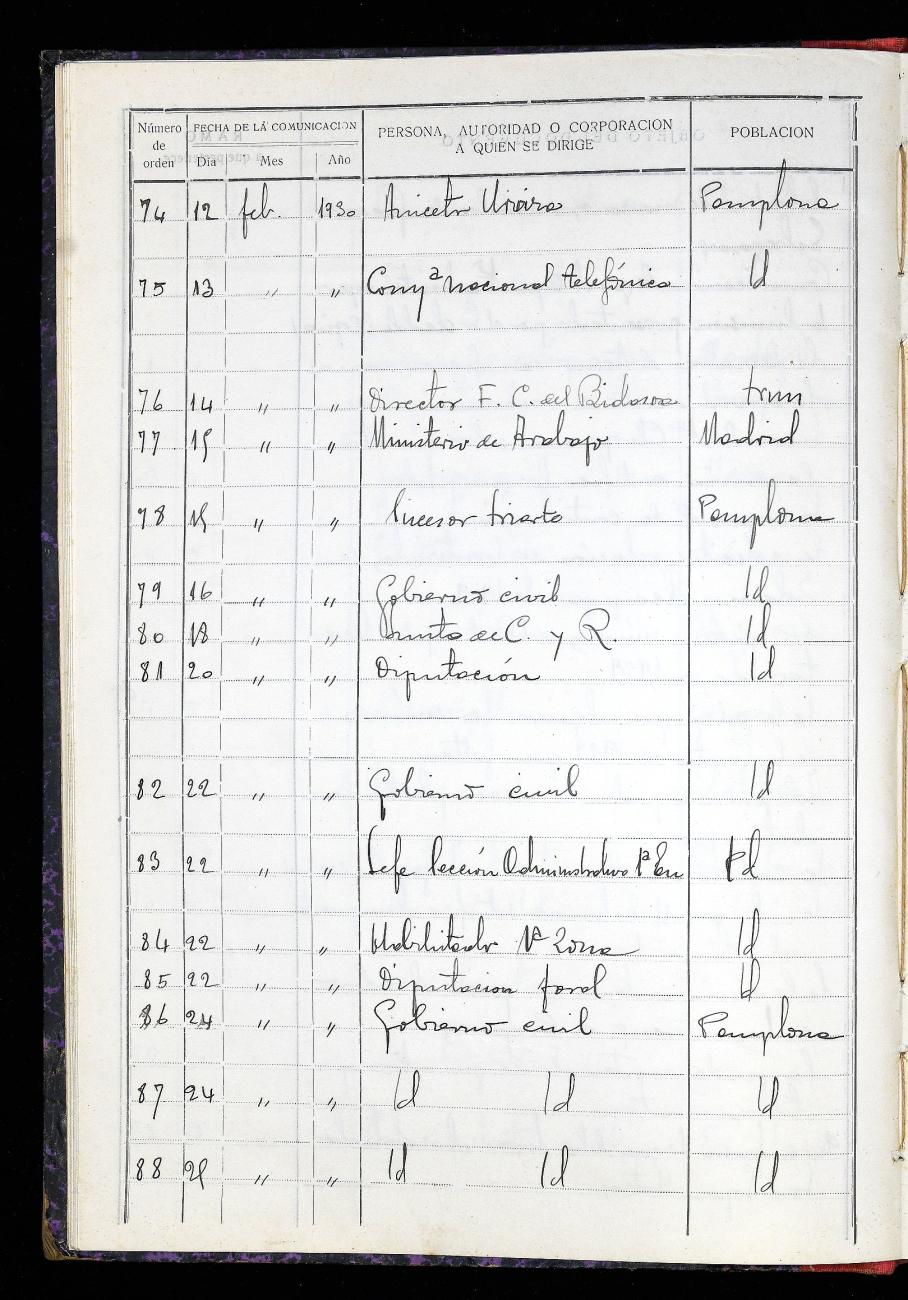 Número de orden FECHA DE LA COMUNICACION Día Mes Año PERSONA, AUTORIDAD O CORPORACION A QUIEN SE DIRIGE POBLACION
74 12 feb. 1930 Aniceto Pamplona
75 13 " " Compª Nacional telefónica Id
76 14 " " Director F. C. del Bidasoa Irun
77 15 " " Ministerio de Trabajo Madrid
78 15 " " Sucesor Iriarte Pamplona
79 16 " " Gobierno civil Id
80 18 " " Junta de C. y R. Id
81 20 " " Diputación Id
82 22 " " Gobierno civil Id
83 22 " " Jefe Sección Administrativa 1ª En Id
84 22 " " Habilitado Zona Id
85 22 " " Diputacion foral Id
86 24 " " Gobierno civil Pamplona
87 24 " " Id Id Id
88 25 " " Id Id Id